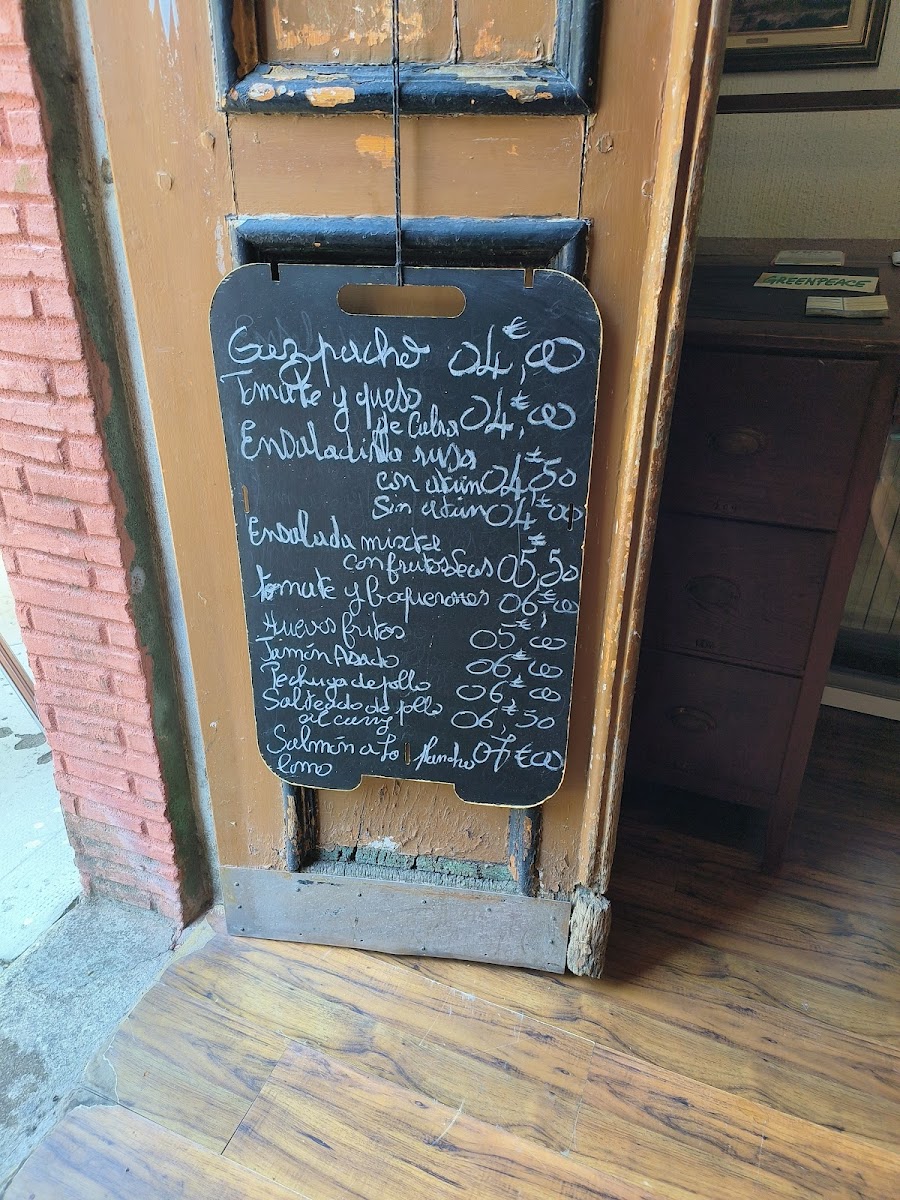 Gazpacho 04,€00
Tomate y queso
de Cabra 04,€00
Ensaladilla rusa
con atún 04,€50
Sin atún 04,€00
Ensalada mixta
con frutos secas 05,€50
tomate y boquerones 06,€00
Huevos fritos 05,€00
Jamón Asado 06,€00
Pechuga de pollo 06,€00
Salteado de pollo 06,€50
al curry
Salmón a la plancha 07€00
lomo
GREENPEACE